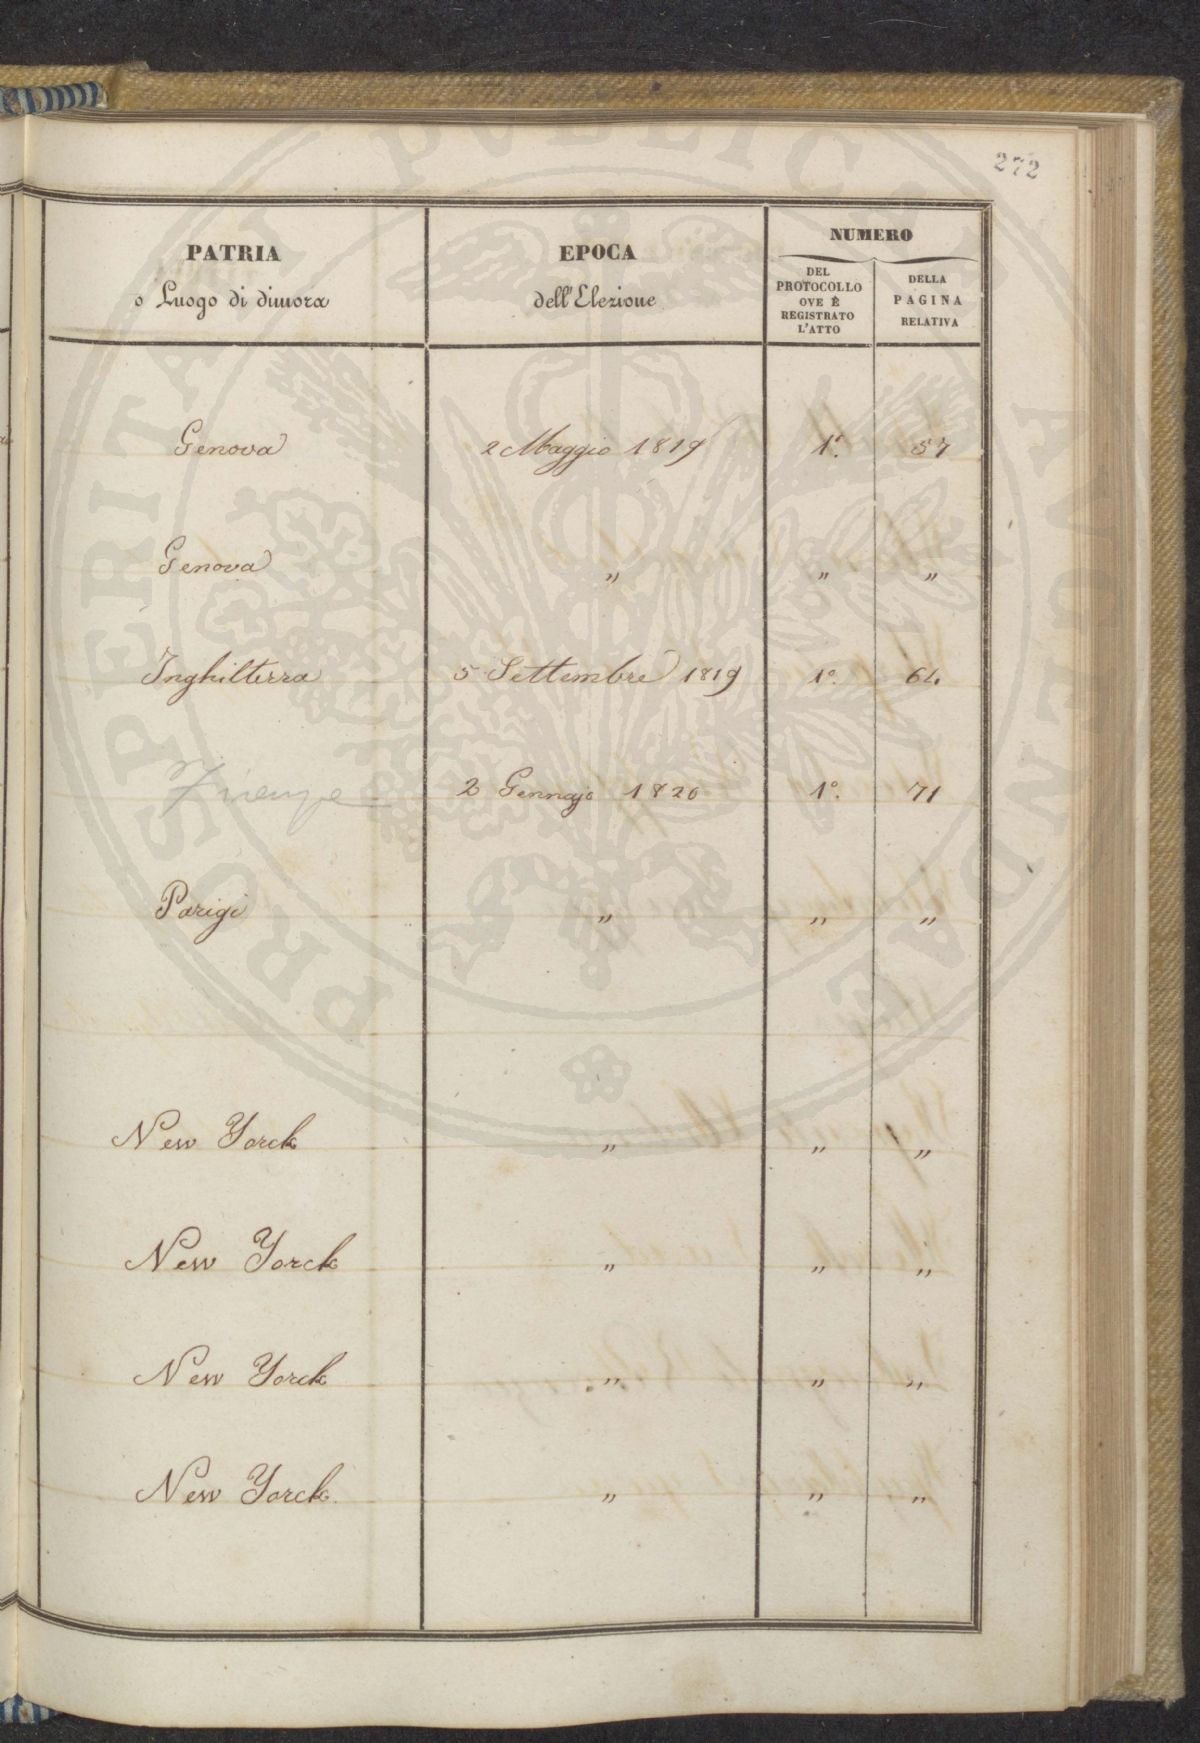 272
PATRIA
o Luogo di dimora
EPOCA
dell'Elezione
NUMERO
DEL
PROTOCOLLO
OVE È
REGISTRATO
L'ATTO
DELLA
PAGINA
RELATIVA
Genova 2 Maggio 1819 1º. 57
Genova " " "
Inghilterra 5 Settembre 1819 1º. 64
Firenze 2 Gennajo 1820 1º. 71
Parigi " " "
New Yorck " " "
New Yorck " " "
New Yorck " " "
New Yorck. " " "
PROSPERITATI PUBLICAE AUGENDAE